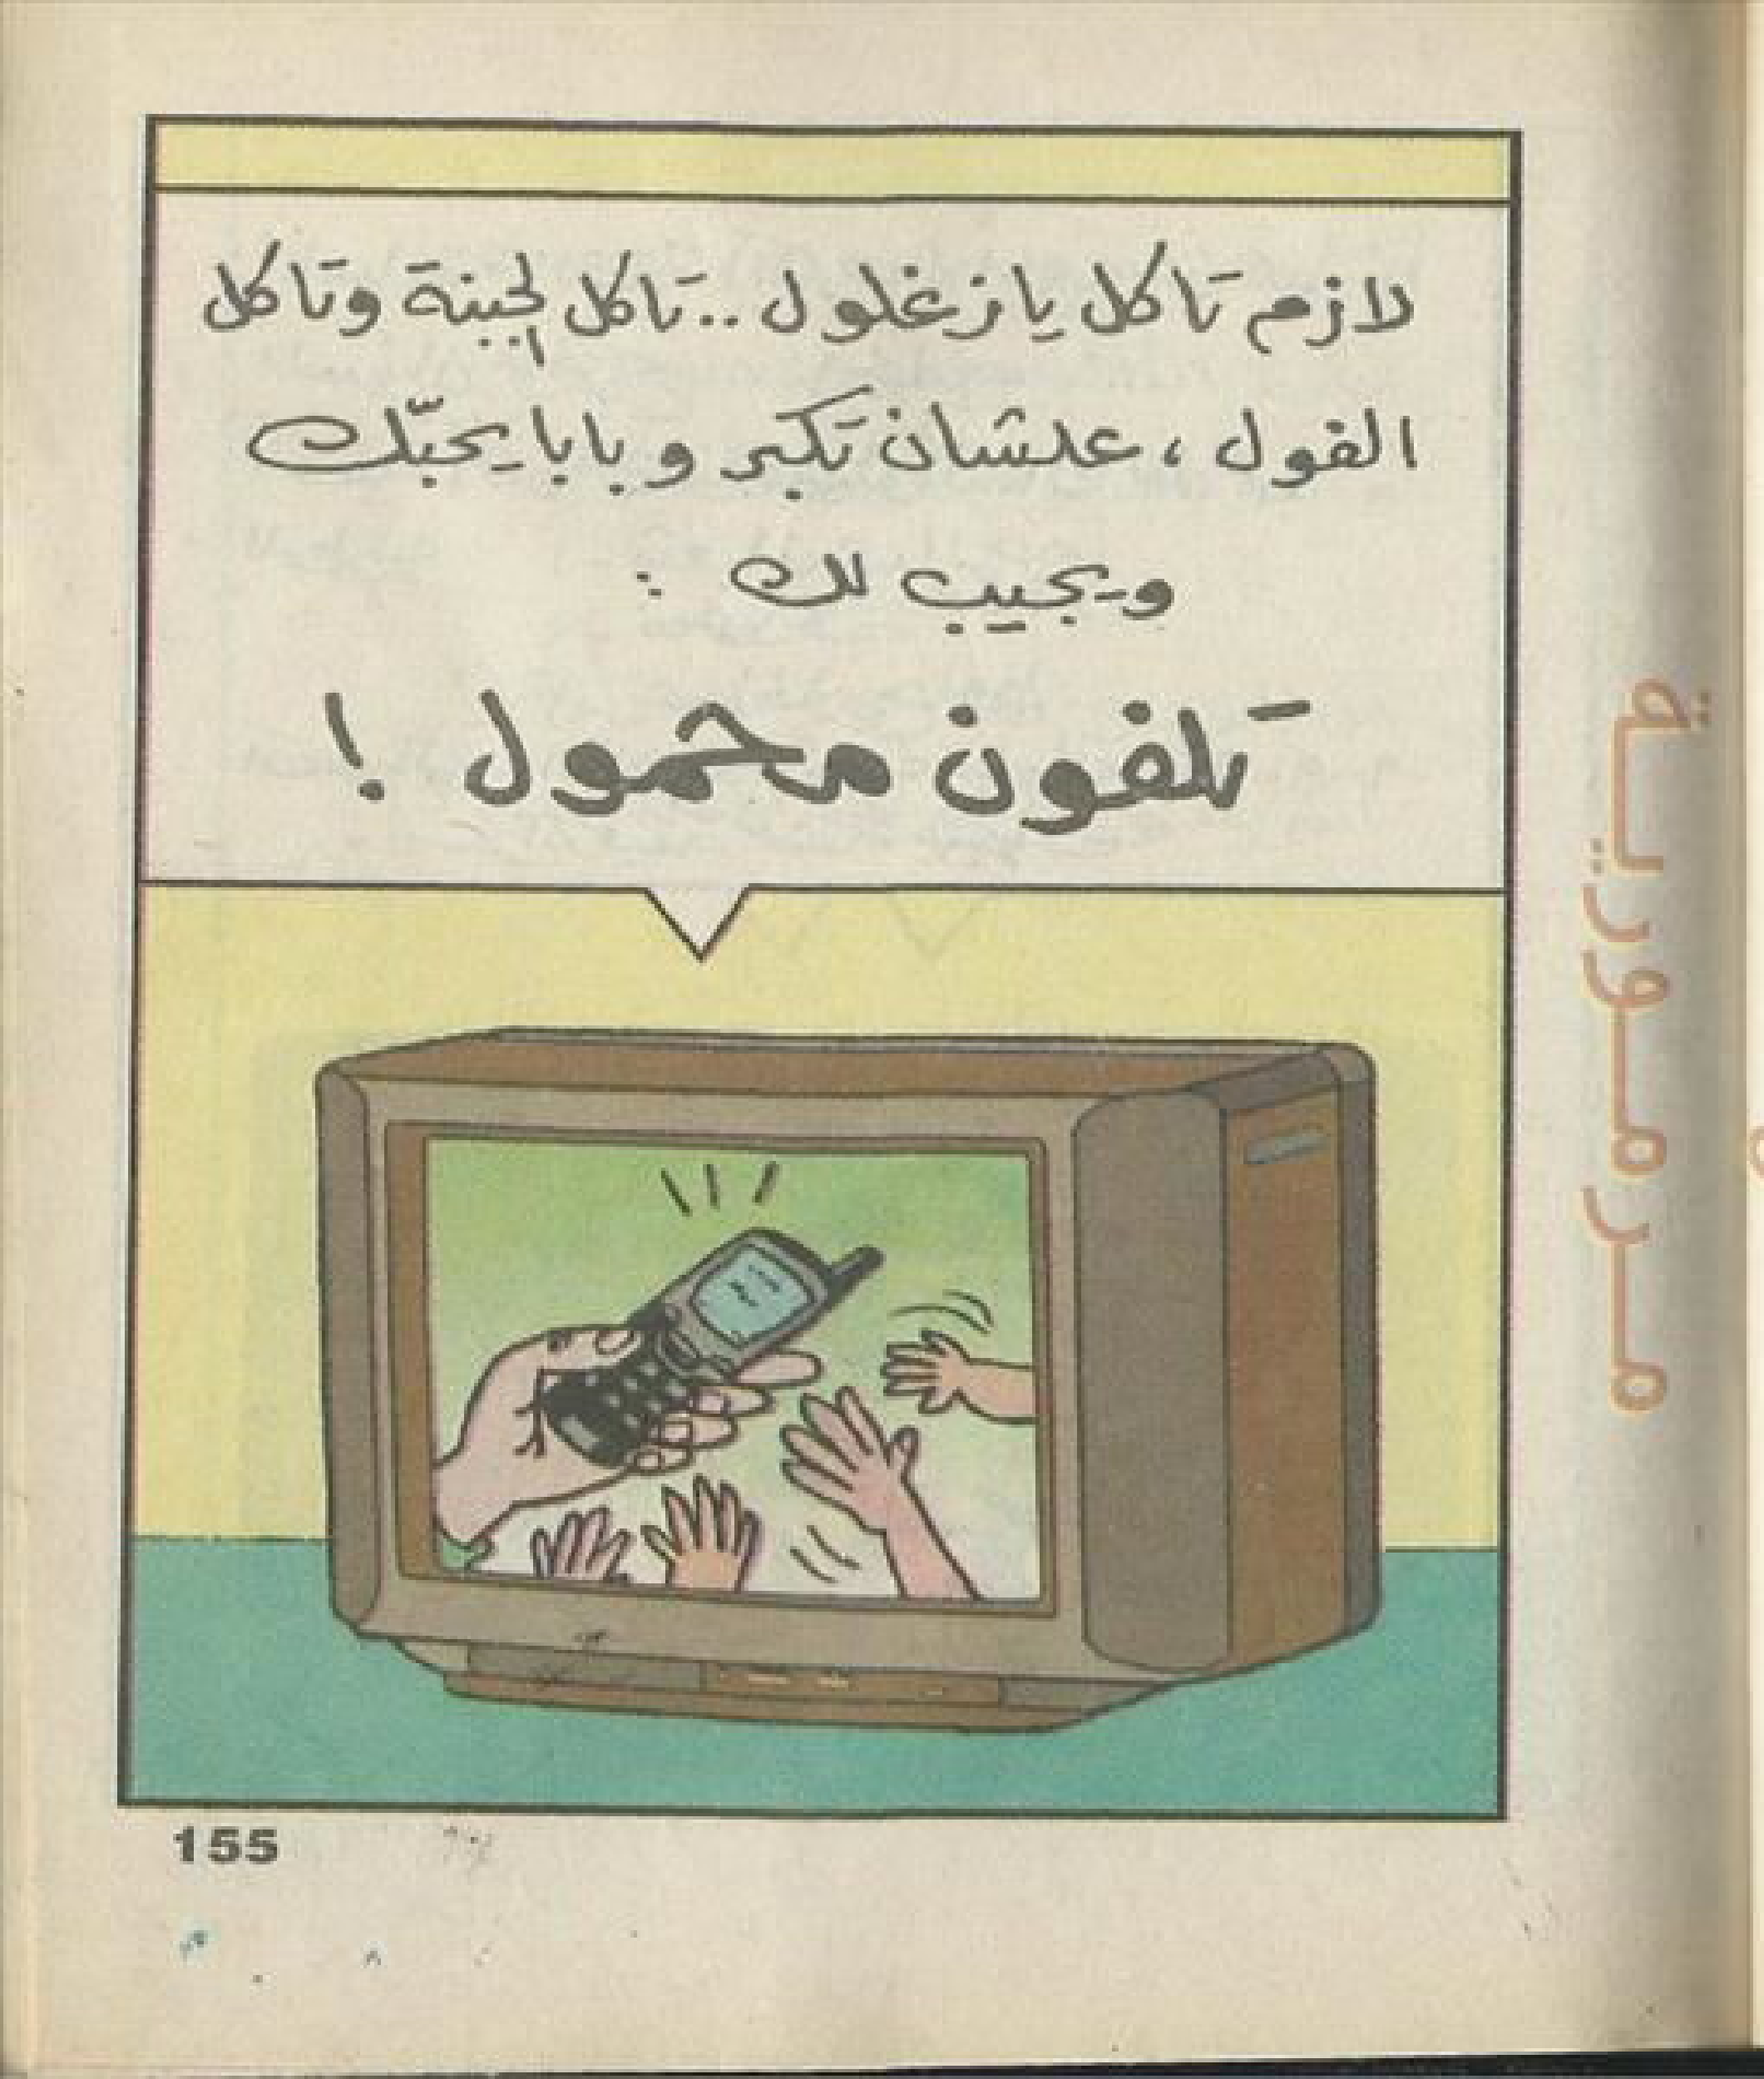 لازم تاكل يا زغلول .. تاكل الجبنة وتاكل
الفول ، علشان تكبر وبابا يحبّك
ويجيب لك :
تلفون محمول !
مرمورية
155